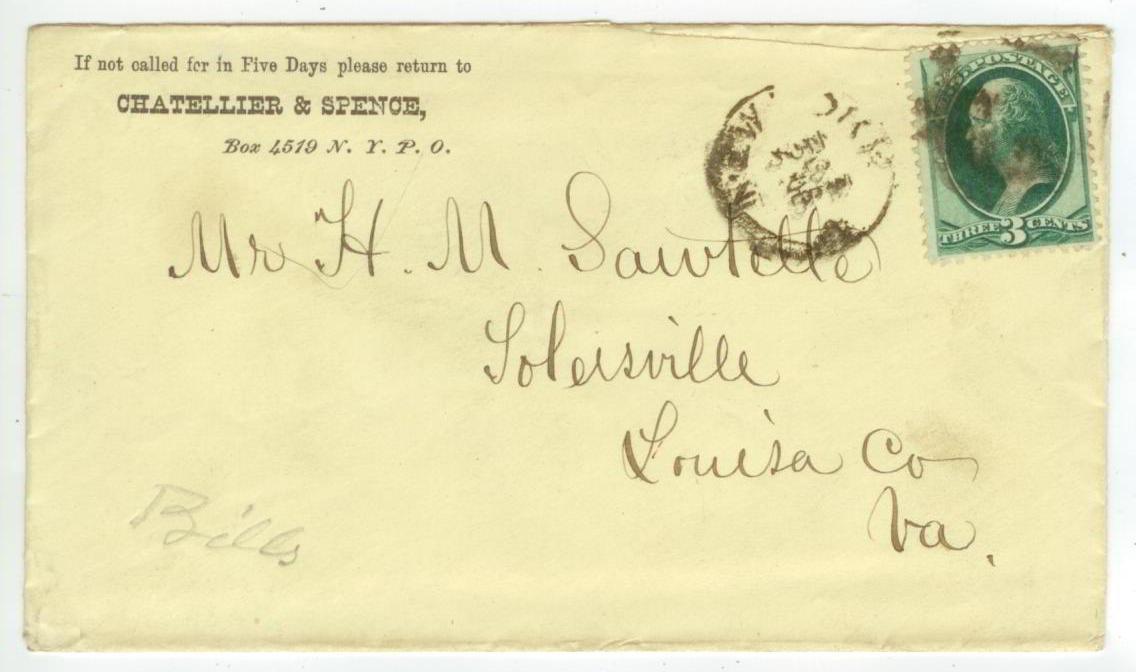 If not called for in Five Days please return to
CHATELLIER & SPENCE,
Box 4519 N. Y. P. O.
NEW YORK
JUN
U.S. POSTAGE
THREE 3 CENTS
Mr H. M. Sawtelle
Tolersville
Louisa Co
Va.
Bills